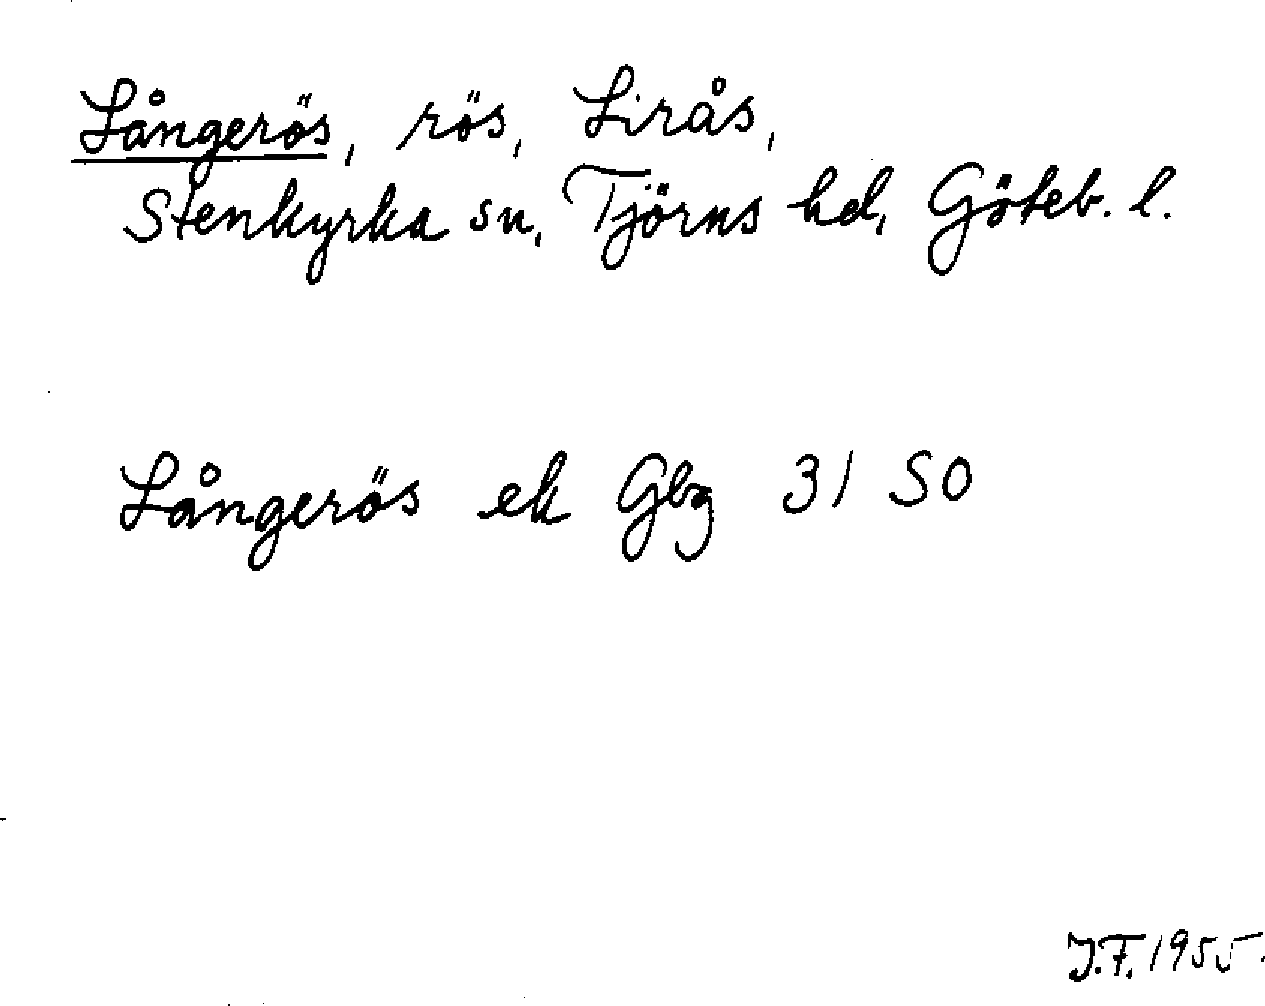 Långerös, rös, Lirås,
Stenkyrka sn, Tjörns hd, Göteb. l.
Långerös ek Gbg 31 SO
J.F. 1955.